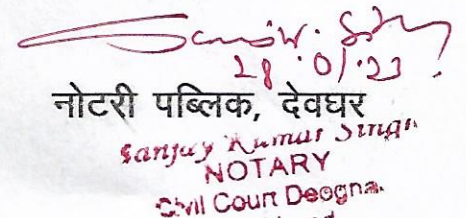 28.01.23
नोटरी पब्लिक, देवघर
Sanjay Kumar Singh
NOTARY
Civil Court Deogna.